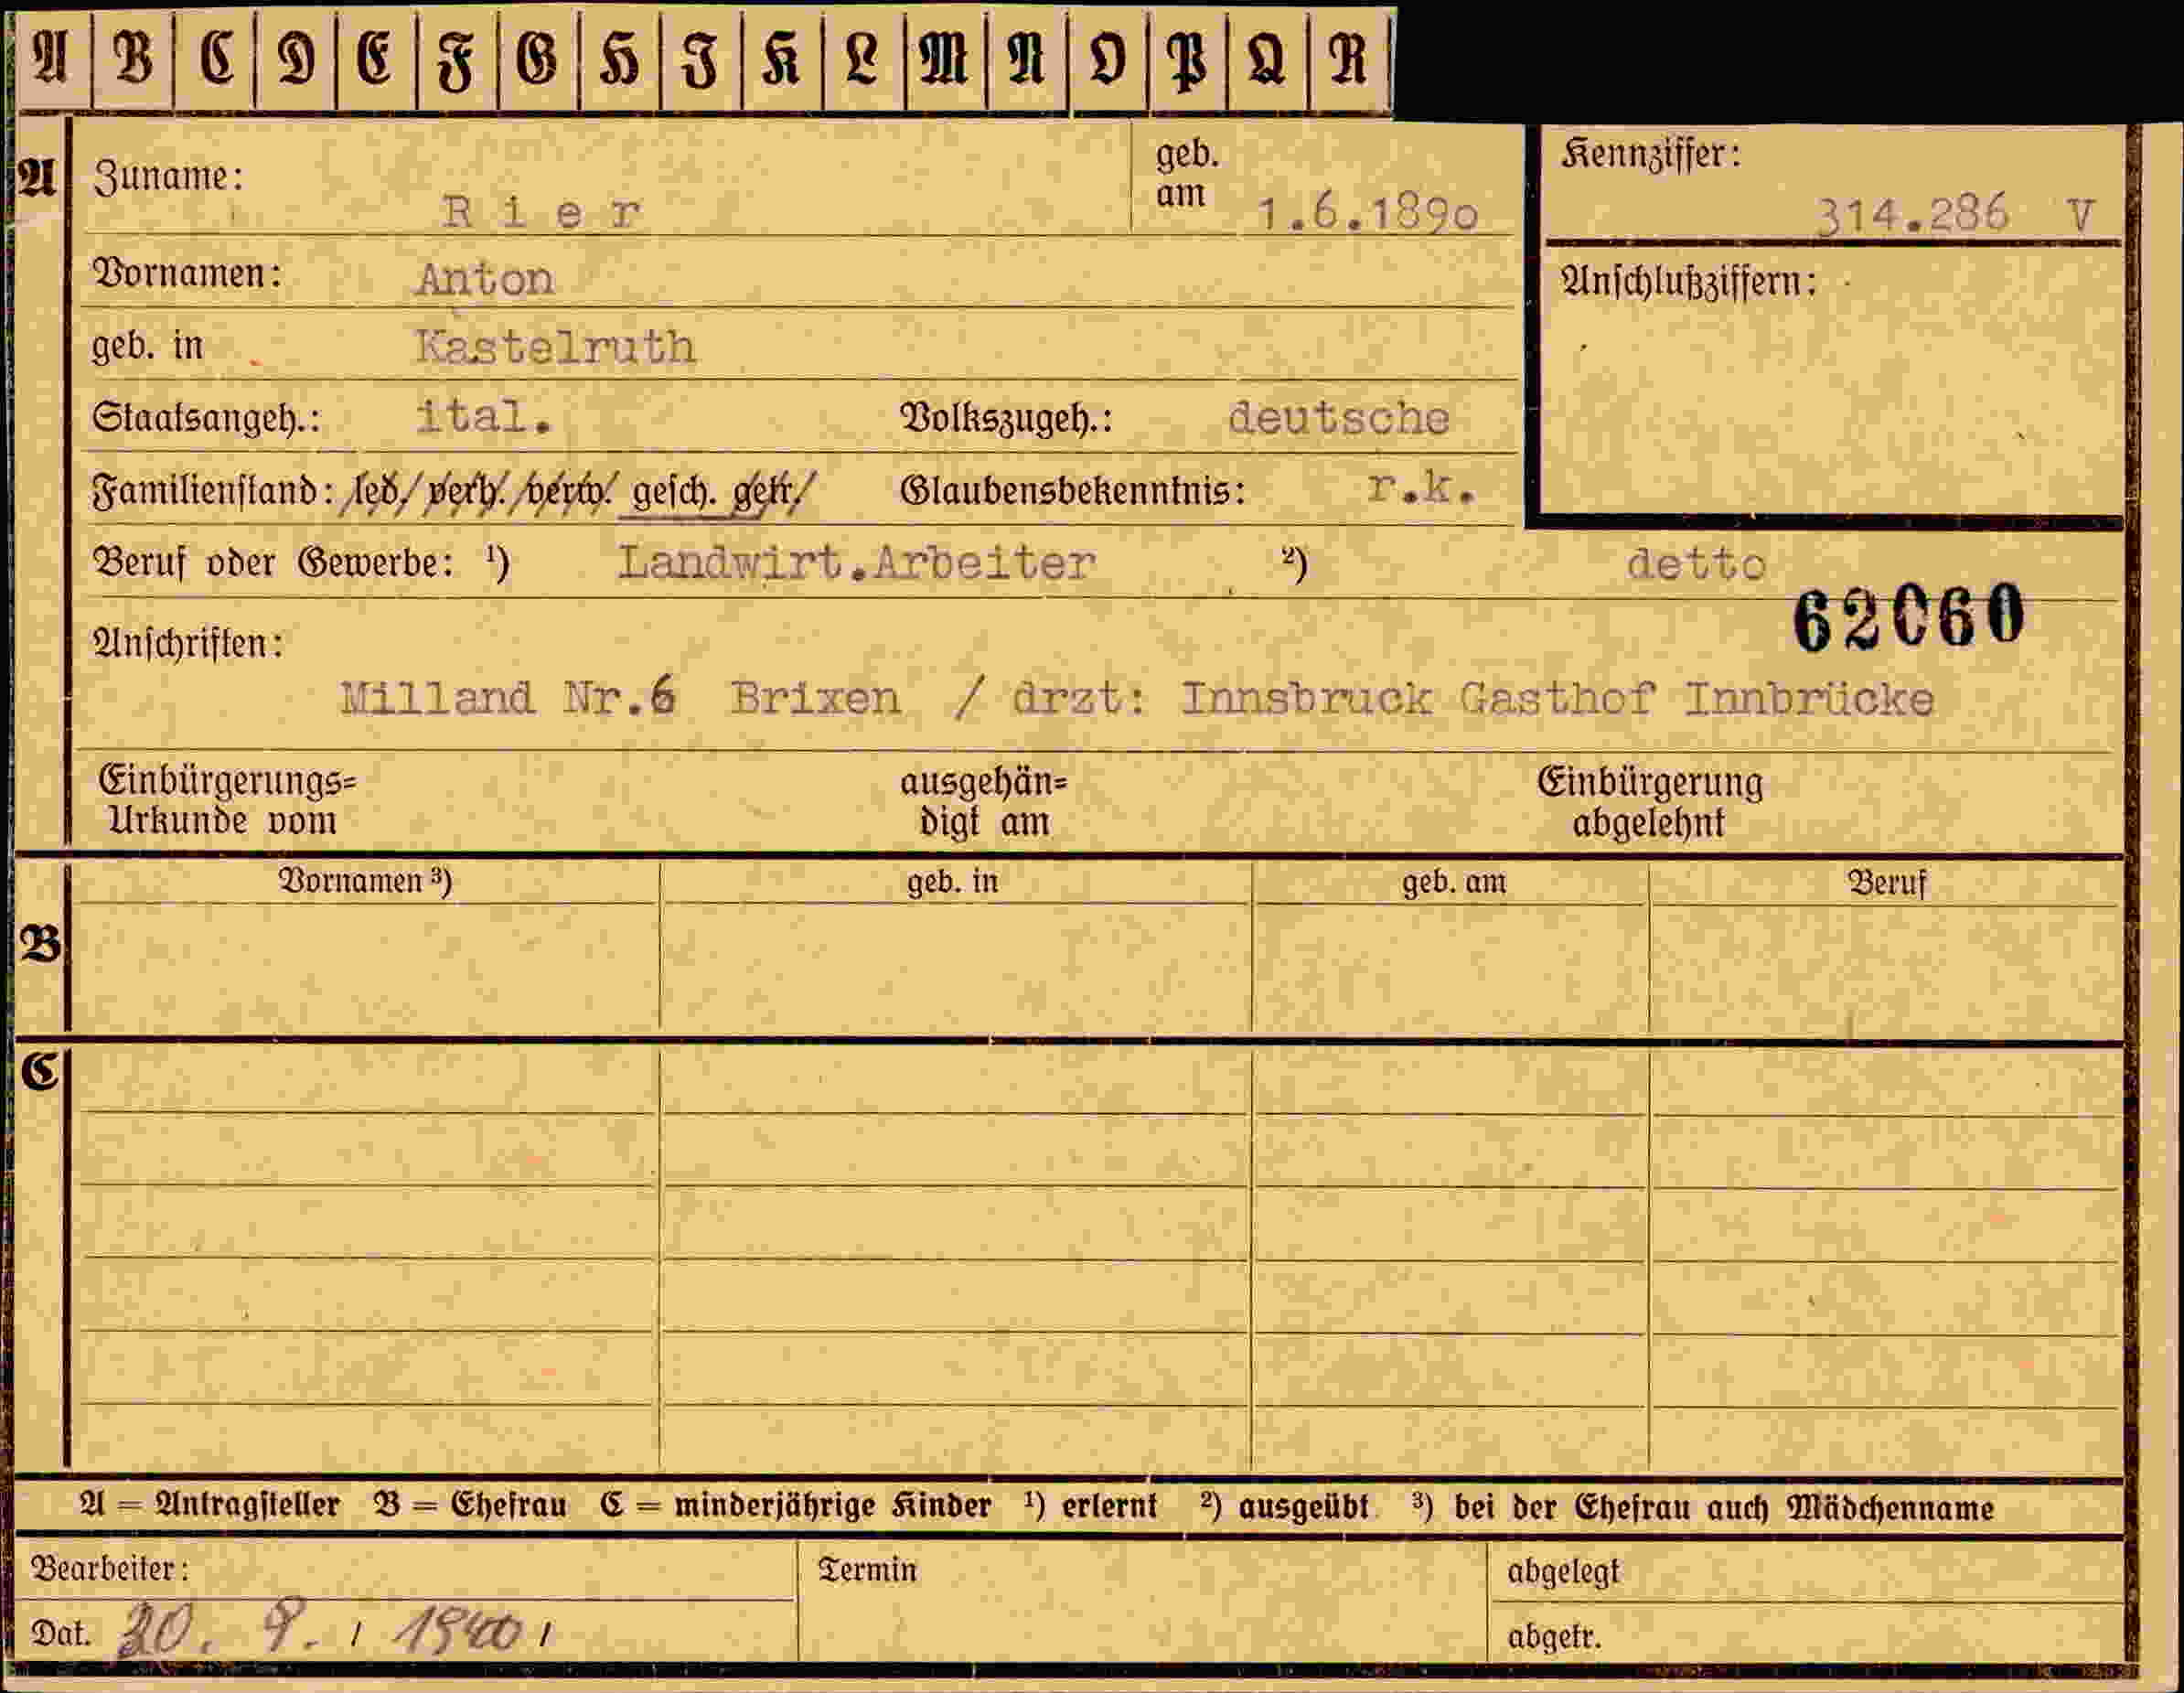 A B C D E F G H I K L M N O P Q R
A Zuname: Rier geb. am 1.6.1890 Kennziffer: 314.286 V
Vornamen: Anton Anschlußziffern:
geb. in Kastelruth
Staatsangeh.: ital. Volkszugeh.: deutsche
Familienstand: led. verh. verw. gesch. getr. Glaubensbekenntnis: r.k.
Beruf oder Gewerbe: ¹) Landwirt.Arbeiter ²) detto
62060
Anschriften:
Milland Nr.6 Brixen / drzt: Innsbruck Gasthof Innbrücke
Einbürgerungs= ausgehän= Einbürgerung
Urkunde vom digt am abgelehnt
Vornamen ³) geb. in geb. am Beruf
B
C
A = Antragsteller B = Ehefrau C = minderjährige Kinder ¹) erlernt ²) ausgeübt ³) bei der Ehefrau auch Mädchenname
Bearbeiter: Termin abgelegt
Dat. 20. 9. 1940 abgetr.